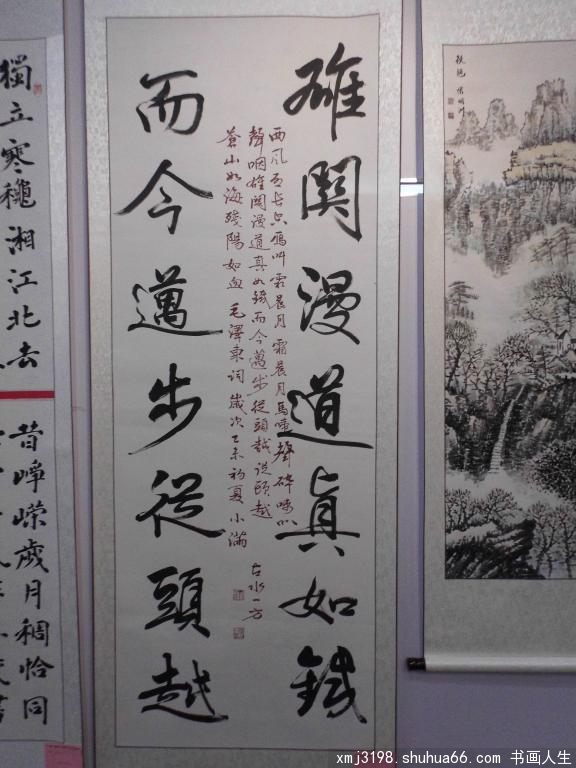 雄関漫道眞如鐵
西风烈长空雁叫霜晨月霜晨月馬蹄聲碎喇叭
聲咽雄関漫道真如鐵而今邁步從頭越從頭越
蒼山如海殘陽如血 毛澤東詞 歲次乙未初夏小滿
古水一方
而今邁步從頭越
獨立寒穐湘江北去
昔崢嶸歲月稠恰同
xmj3198.shuhua66.com 书画人生